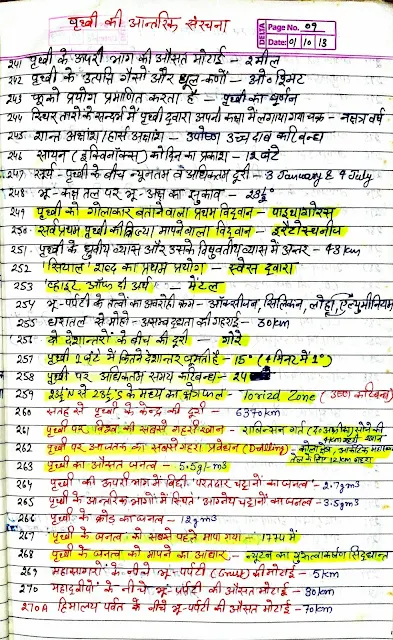 पृथ्वी की आन्तरिक संरचना
DELTA Page No. 09
Date: 01/10/13
241 पृथ्वी के ऊपरी भाग की औसत मोटाई - 2 मील
242 पृथ्वी के उत्पत्ति गैसों और धूल-कणों - ओ० श्मिट
243 फूको प्रयोग प्रमाणित करता है - पृथ्वी का घूर्णन
244 स्थिर तारों के सन्दर्भ में पृथ्वी द्वारा अपनी कक्षा में लगाया गया चक्र - नक्षत्र वर्ष
245 शान्त अक्षांश/हार्स अक्षांश - उपोष्ण उच्च दाब कटिबन्ध
246 सायन (इक्विनॉक्स) को दिन का प्रकाश - 12 घंटे
247 सूर्य - पृथ्वी के बीच न्यूनतम व अधिकतम दूरी - 3 January & 4 July
248 भू-कक्ष तल पर भू-अक्ष का झुकाव - 23½°
249 पृथ्वी को गोलाकार बताने वाला प्रथम विद्वान - पाइथागोरस
250 सर्वप्रथम पृथ्वी की त्रिज्या मापने वाला विद्वान - इरैटोस्थनीज
251. पृथ्वी के ध्रुवीय व्यास और उसके विषुवतीय व्यास में अन्तर - 43 km
252 'सियाल' शब्द का प्रथम प्रयोग - स्वेस द्वारा
253 व्हाइट ऑफ दी अर्थ - मेंटल
254 भू-पर्पटी के तत्वों का अवरोही क्रम - ऑक्सीजन, सिलिकन, लोहा, एल्युमीनियम
255 धरातल से मोहो-असम्बद्धता की गहराई - 30 km
256 दो देशान्तरों के बीच की दूरी - गोरे
257 पृथ्वी 1 घंटे में कितने देशान्तर घूमती है - 15° (4 मिनट में 1°)
258 पृथ्वी पर अधिकतम समय कटिबन्ध - 24
259 23½°N से 23½°S के मध्य का क्षेत्रफल - Torrid Zone (उष्ण कटिबन्ध)
260 सतह से पृथ्वी के केन्द्र की दूरी - 6370 km
261 पृथ्वी पर विश्व की सबसे गहरी खान - राबिन्सन गर्त (द० अफ्रीका) सोने की 4 km गहरी खान
262 पृथ्वी पर आजतक का सबसे गहरा प्रवेधन (Drilling) - कोला क्षेत्र, आर्कटिक महासागर तेल के लिए 12 km गहरा
263 पृथ्वी का औसत जनत्व - 5.5g/-m3
264 पृथ्वी की ऊपरी भाग में बिछी परतदार चट्टानों का जनत्व - 2.7gm3
265 पृथ्वी के आन्तरिक भागों में स्थित आग्नेय चट्टानों का जनत्व - 3.5gm3
266 पृथ्वी के क्रोड का जनत्व - 12gm3
267 पृथ्वी के जनत्व को सबसे पहले मापा गया - 1774 में
268 पृथ्वी के जनत्व को मापने का आधार - न्यूटन का गुरुत्वाकर्षण सिद्धान्त
269 महासागरों के नीचे भू-पर्पटी (Crust) की मोटाई - 5 km
270 महाद्वीपों के नीचे भू-पर्पटी की औसत मोटाई - 30 km
270A हिमालय पर्वत के नीचे भू-पर्पटी की औसत मोटाई - 70 km